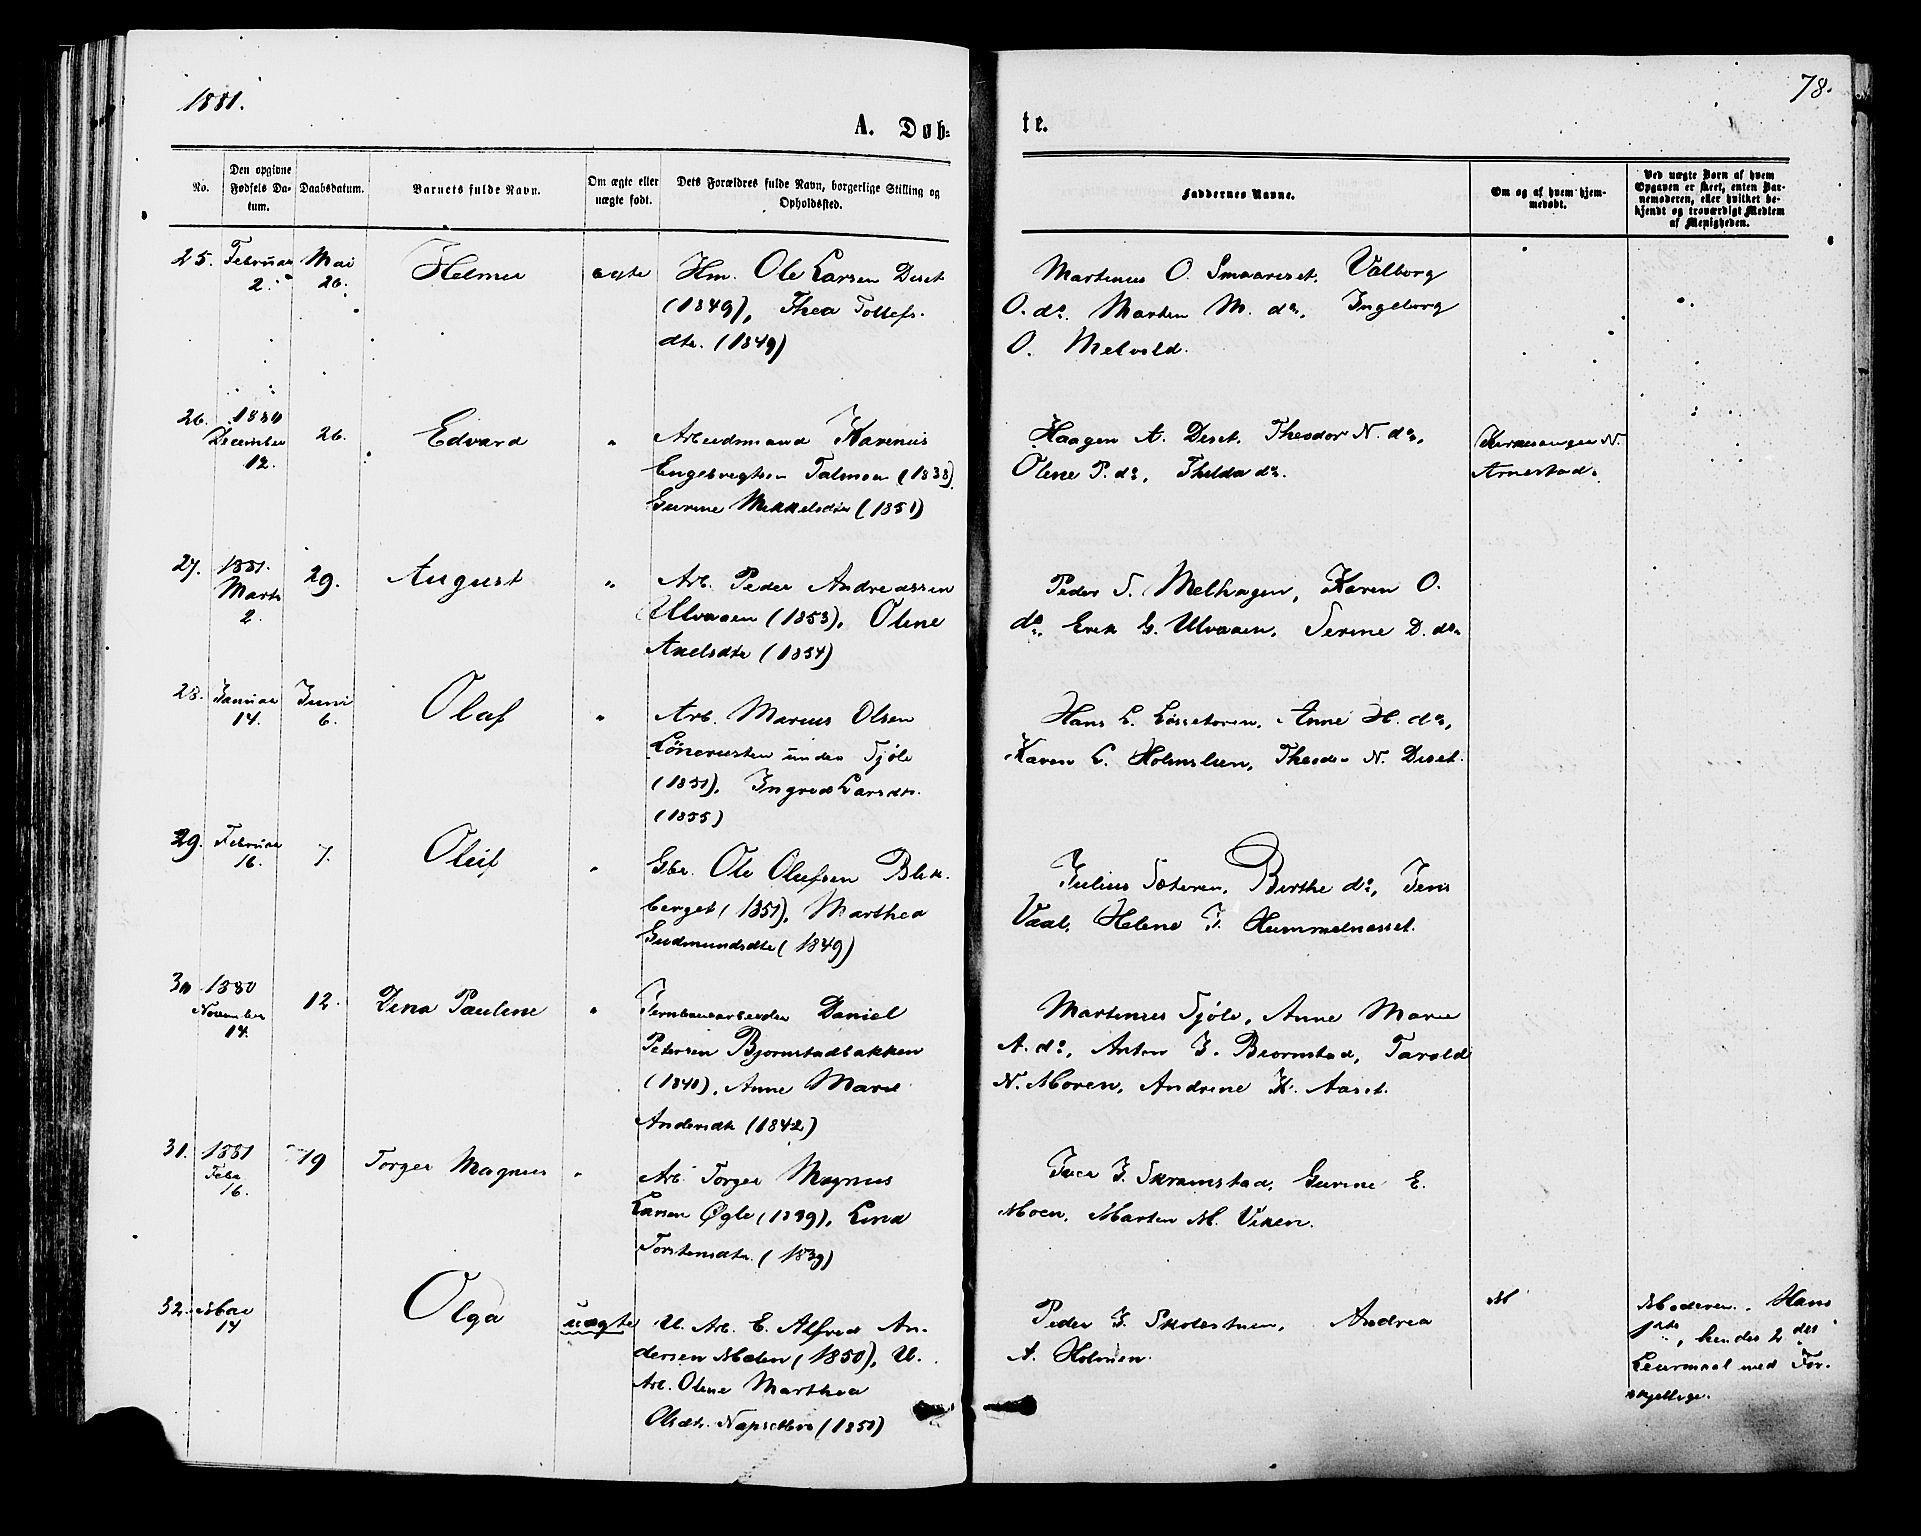 1881.
78.
A. Døb-
te.
No.
Den opgivne Fødsels Datum.
Daabsdatum.
Barnets fulde Navn.
Om ægte eller uægte født.
Dets Forældres fulde Navn, borgerlige Stilling og Opholdssted.
Faddernes Navne.
Om og af hvem hjemmedøbt.
Ved uægte Børn af hvem Opgaven er skeet, enten Barnemoderen, eller hvilket bekjendt og troværdigt Medlem af Menigheden.
25. Februar 2. Mai 26. Helmer ægte Hm. Ole Larsen Deset
(1849), Thea Tollefs-
dtr. (1849)
Martinus O. Smaariset, Valborg
O. do. Marten M. do, Ingeborg
O. Melvold.
26. 1880 December 12. 26. Edvard " Arbeidsmand Karenus
Engebregtsen Talmoen (1838),
Gurine Mikkelsdtr (1851)
Haagen A. Deset, Theodor N. do,
Olene P. do, Thilda do.
N. Arnestad.
27. 1881. Marts 2. 29. August " Arb. Peder Andreassen
Ulvaaen (1853), Olene
Axelsdtr (1854)
Peder S. Melhagen, Karen O.
do, Erik G. Ulvaaen, Serine D. do
28. Januar 14. Juni 6. Olaf " Arb. Marius Olsen
under Sjøli
(1851), Ingrid Larsdtr.
(1855)
Hans L. Løssetoren, Anne H. do,
Karen L. Holmslien, Theodor N. Deset.
29. Februar 16. 7. Oluf " Gbr. Ole Olufsen Blik-
berget (1851), Marthea
Gudmundsdtr (1849)
Julius Sæteren, Berthe do, Jens
Vaal, Helene J. Hummelnesset.
30 1880 November 14. 12. Dina Pauline " Jernbanearbeider Daniel
Petersen Bjørnstadbakken
(1840), Anne Marie
Andersdtr (1842)
Martinus Sjøli, Anne Marie
A. do, Anton J. Bjørnstad, Tarald
N. Moren, Andrine K. Aaset.
31. 1881 Febr 16. 19 Torger Magnus " Arb. Torger Magnus
Larsen Øgle (1839), Lena
Torstensdtr. (1839)
Iver J. Skramstad, Gurine E.
Moen, Marten M. Viken.
32. Mai 14 Olga uægte U. Arb. E. Alfred An-
dersen Malen (1850), U.
Arb. Olene Marthea
Olsdtr. (1850)
Peder J. Skolestuen, Andrea
A. Holmen.
M
Moderen. Hans
1ste, hendes 2det
Leiermaal med For-
skjellige.